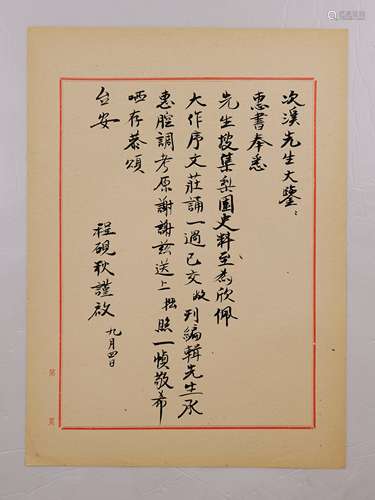 次溪先生大鑒：
惠書奉悉
先生搜集梨園史料至為欣佩
大作序文莊誦一過已交敝刊編輯先生承
惠腔調考原謝謝茲送上拙照一幀敬希
哂存恭頌
台安
程硯秋謹啟
九月四日
第 頁